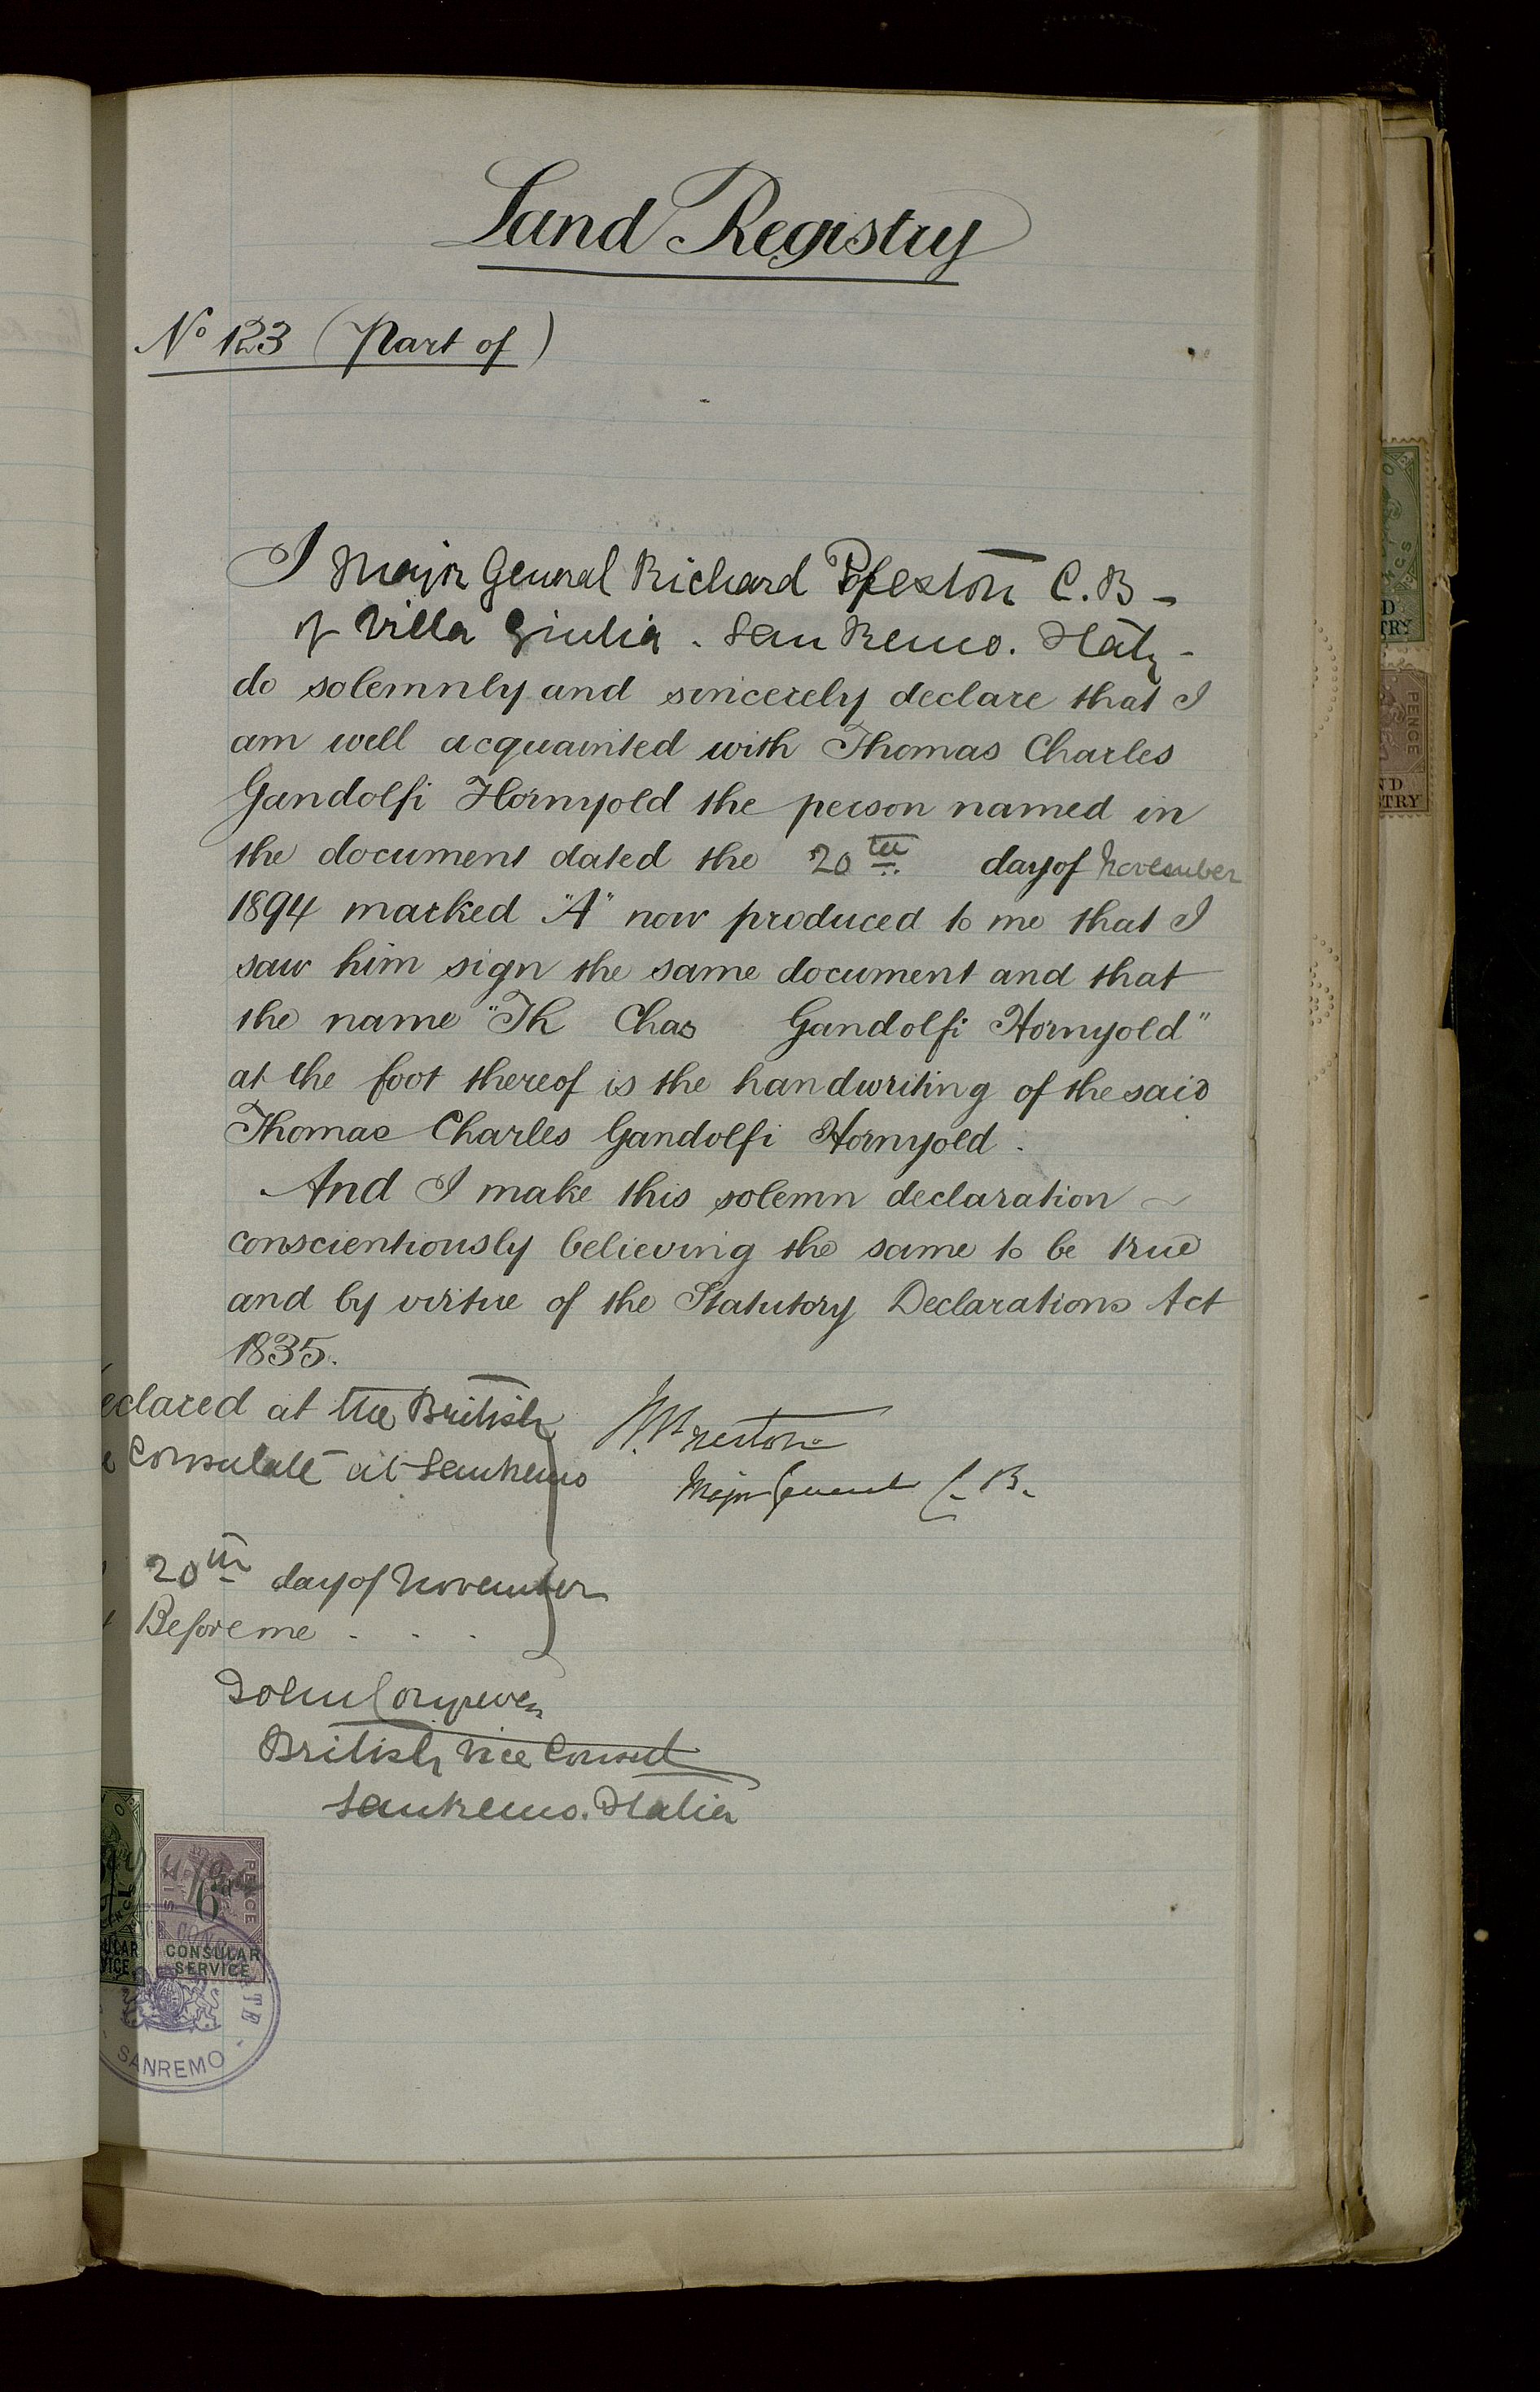 Land Registry
No 123 (Part of)
I Major General Richard Preston C.B -
of Villa Giulia. San Remo. Italy -
do solemnly and sincerely declare that I
am well acquainted with Thomas Charles
Gandolfi Hornyold the person named in
the document dated the 20th day of November
1894 marked "A" now produced to me that I
saw him sign the same document and that
the name "Th Chas Gandolfi Hornyold"
at the foot thereof is the handwriting of the said
Thomas Charles Gandolfi Hornyold.
And I make this solemn declaration
conscientiously believing the same to be true
and by virtue of the Statutory Declarations Act
1835.
eclared at the British
Consulate at Sanremo
R. Preston
Major General C.B.
20th day of November
Before me . . .
British Vice Consul
Sanremo. Italia
6d
PENCE
CONSULAR
SERVICE
SANREMO
PENCE